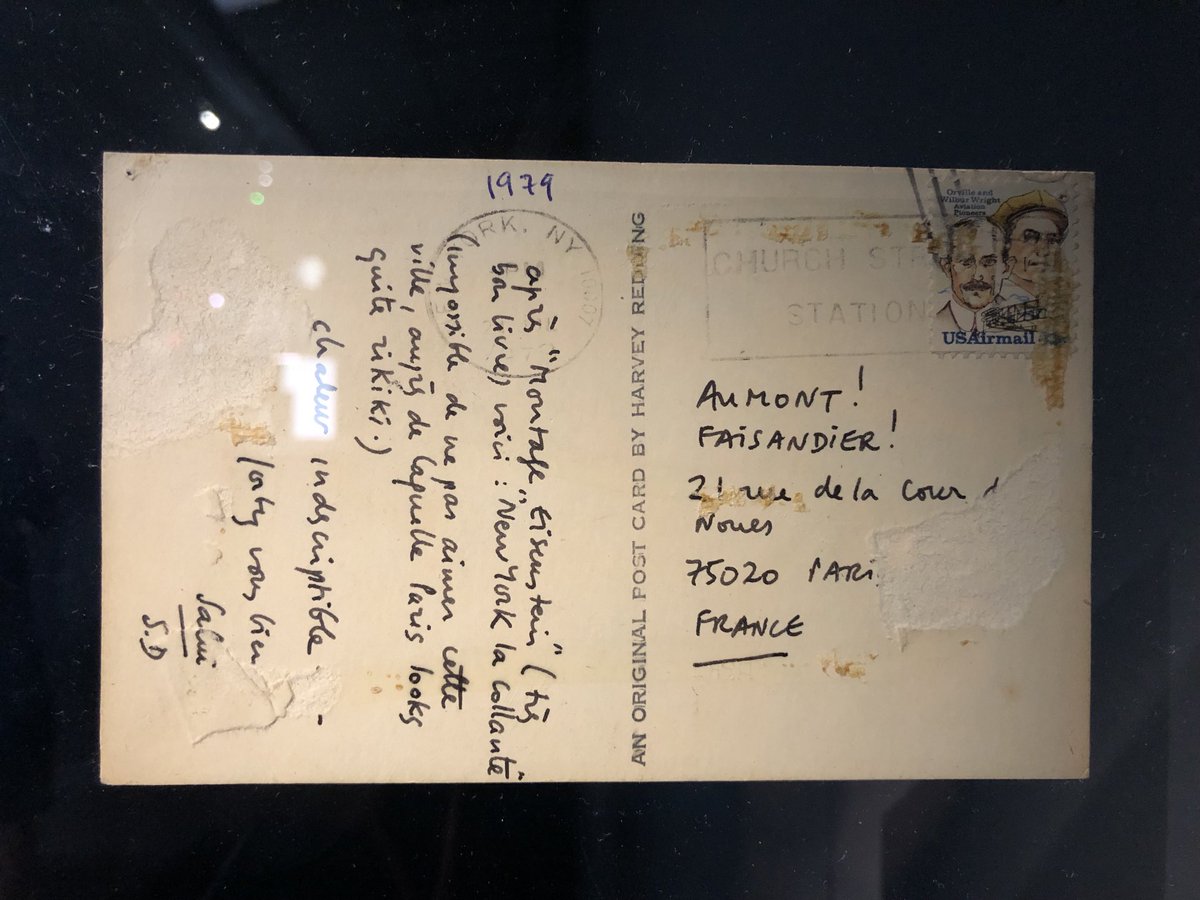 1979
RK, NY 10007
après "Montage Eisenstein" (très
bon livre) voici : "New York la collante"
(impossible de ne pas aimer cette
ville, auprès de laquelle Paris looks
quite rikiki.)
chaleur indscriptible -
vous bien
Salui
S.D
AN ORIGINAL POST CARD BY HARVEY REDDING
CHURCH STR
STATION
Orville and
Wilbur Wright
Aviation
Pioneers
USAirmail
AUMONT!
FAISANDIER!
21 rue de la Cour
Noues
75020 PARI
FRANCE